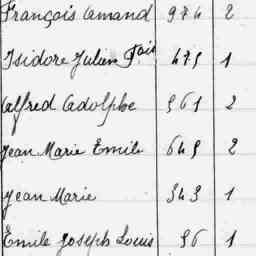 François Amand 976 2
Isidore Julien Fois 475 1
Alfred Adolphe 561 2
Jean Marie Emile 645 2
Jean Marie 343 1
Emile Joseph Louis 56 1